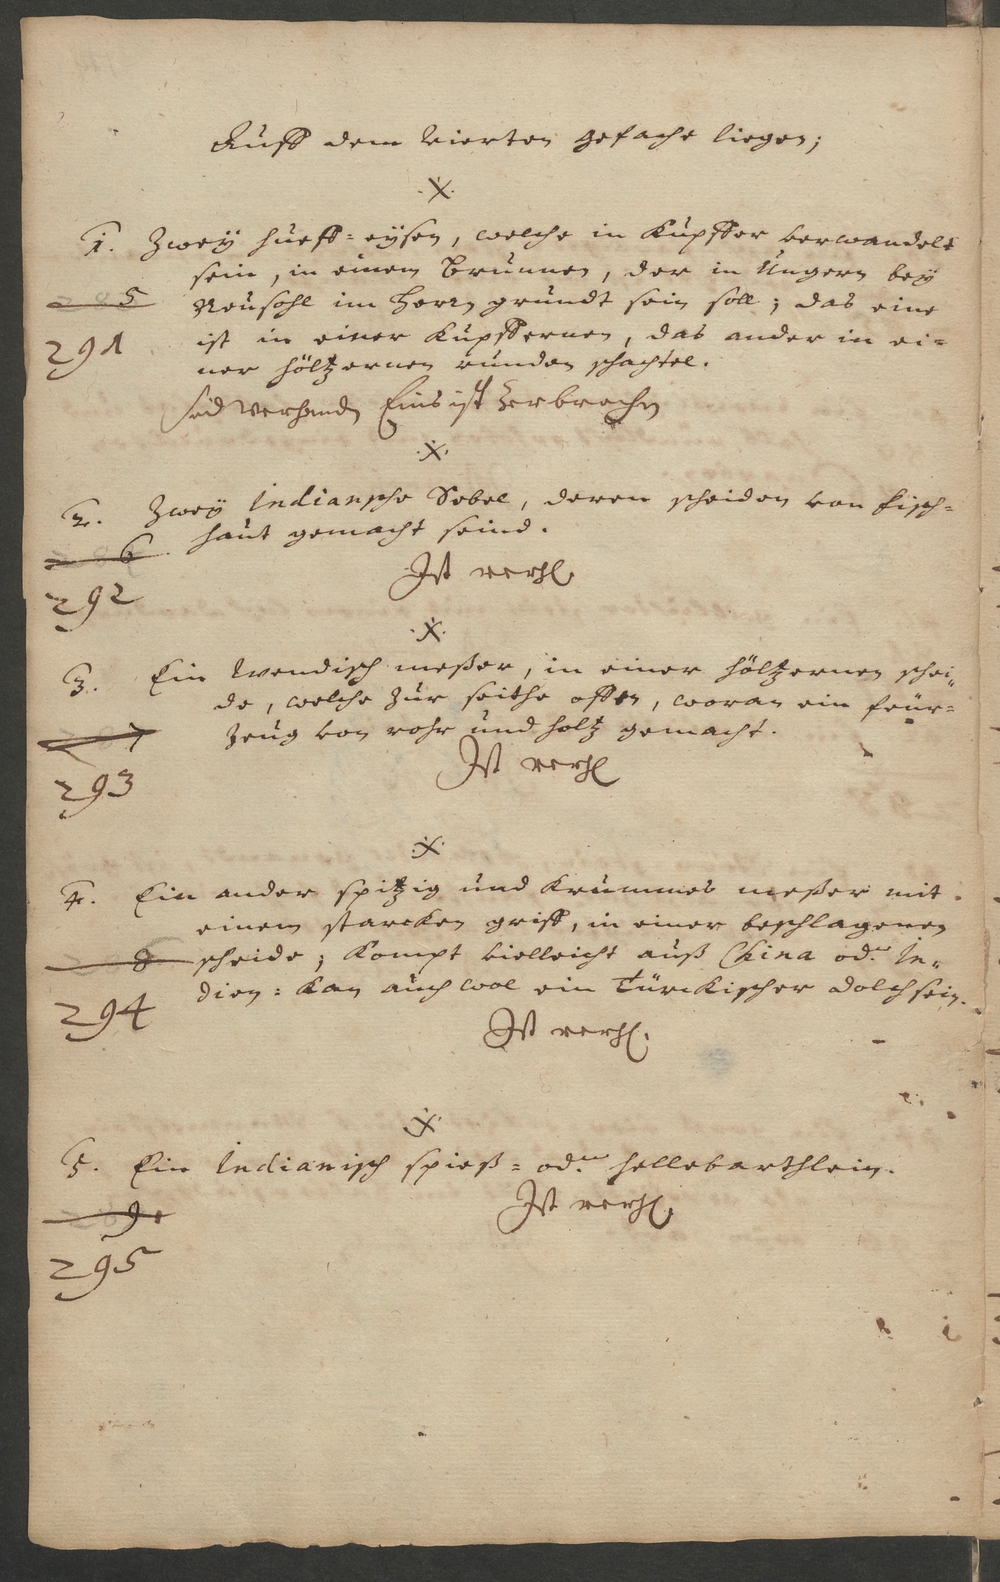 Auff dem Vierten gefache liegen;
X
1. Zweÿ hueff=eÿsen, welche in Kupffer verwandelt
sein, in einem Brunnen, der in Ungern beÿ
5
Neusohl im Herrn grundt sein soll; das eine
291
ist in einer Kupffernen, das ander in ei=
ner höltzernen runden schachtel.
Seid verhandn Eins ist zerbrochn
X
2. Zweÿ Indiansche Sebel, deren scheiden von fisch=
haut gemacht seind.
6
Ist verh.
292
X
3. Ein Wendisch meßer, in einer höltzernen schei=
de, welche zur seithe offen, woran ein feür=
7
zeug von rohr und holtz gemacht.
Ist verh
293
X
4. Ein ander spitzig und krummes meßer mit
einem starcken griff, in einer beschlagenen
8
scheide; kompt vielleicht auß China od. In=
dien: kan auch wol ein Türckischer dolch sein.
294
Ist verh.
X
5. Ein Indianisch spieß= od. hellebarthlein.
9
Ist verh.
295